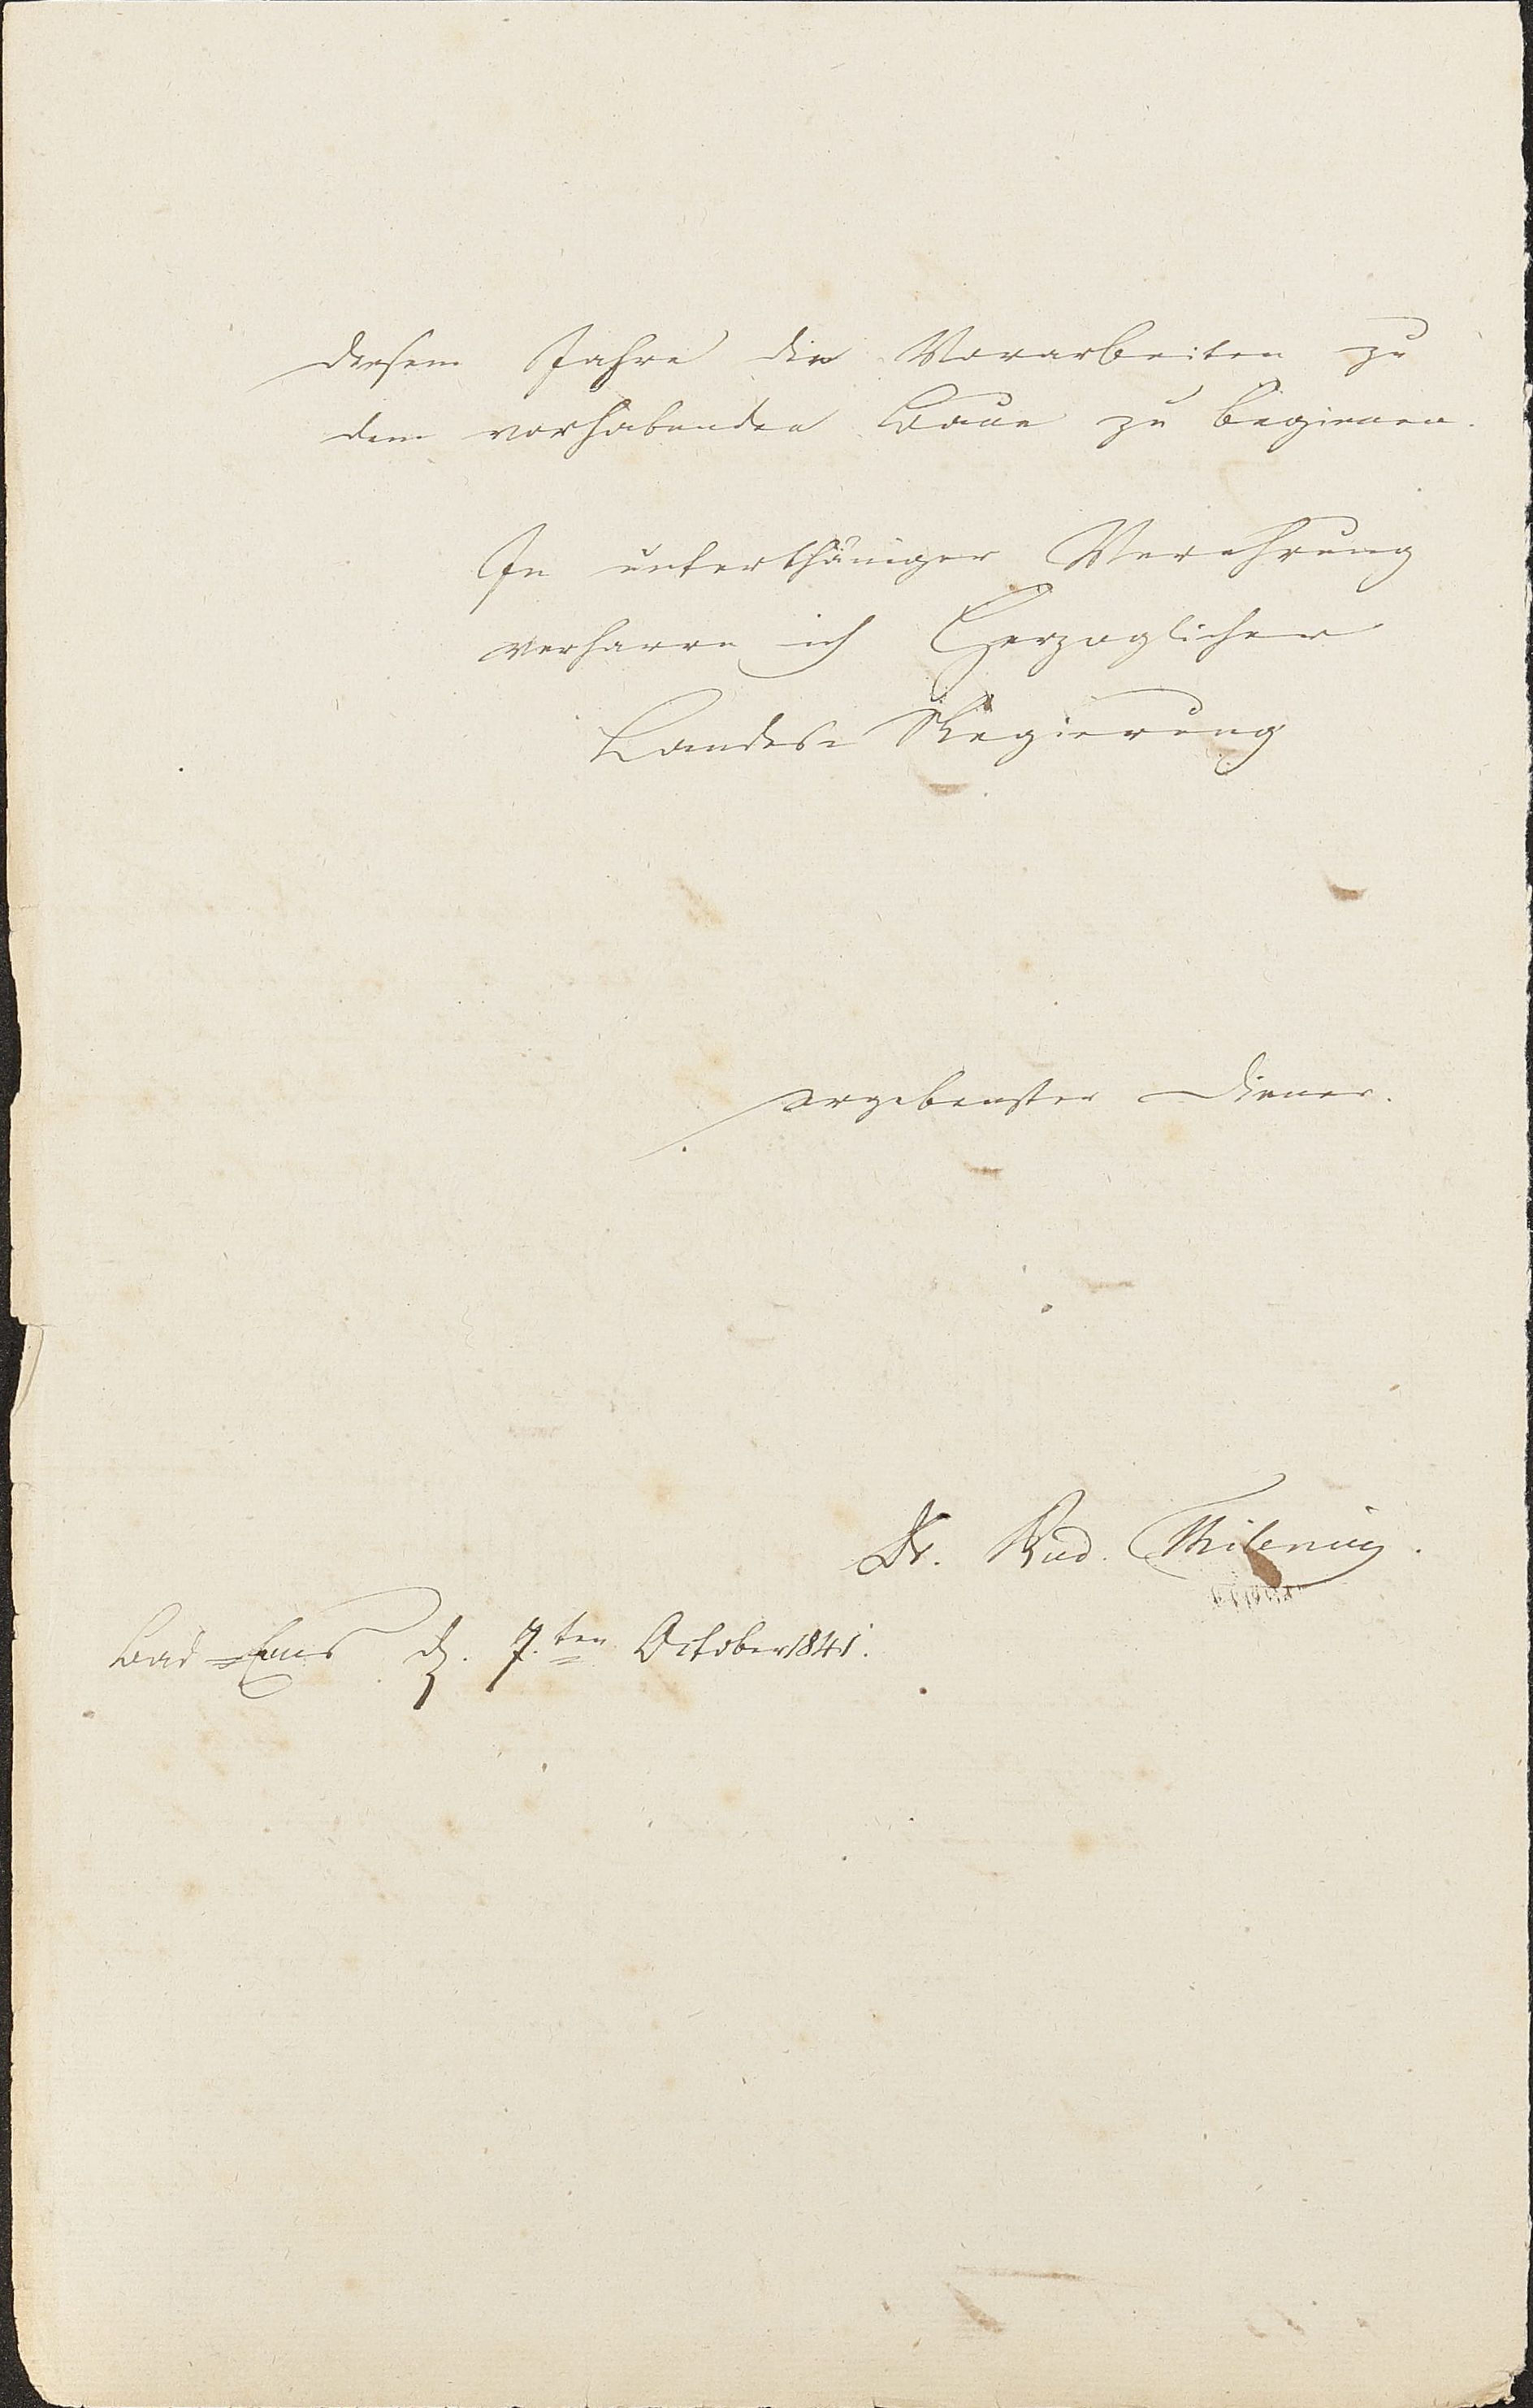 diesem Jahre die Vorarbeiten zu
dem vorhabenden Baue zu beginnen.
In unterthäniger Verehrung
verharre ich Herzoglicher
Landes-Regierung
ergebenster Diener.
Dr. Rud. Thilenius.
Bad-Ems d. 7.ten October 1841.